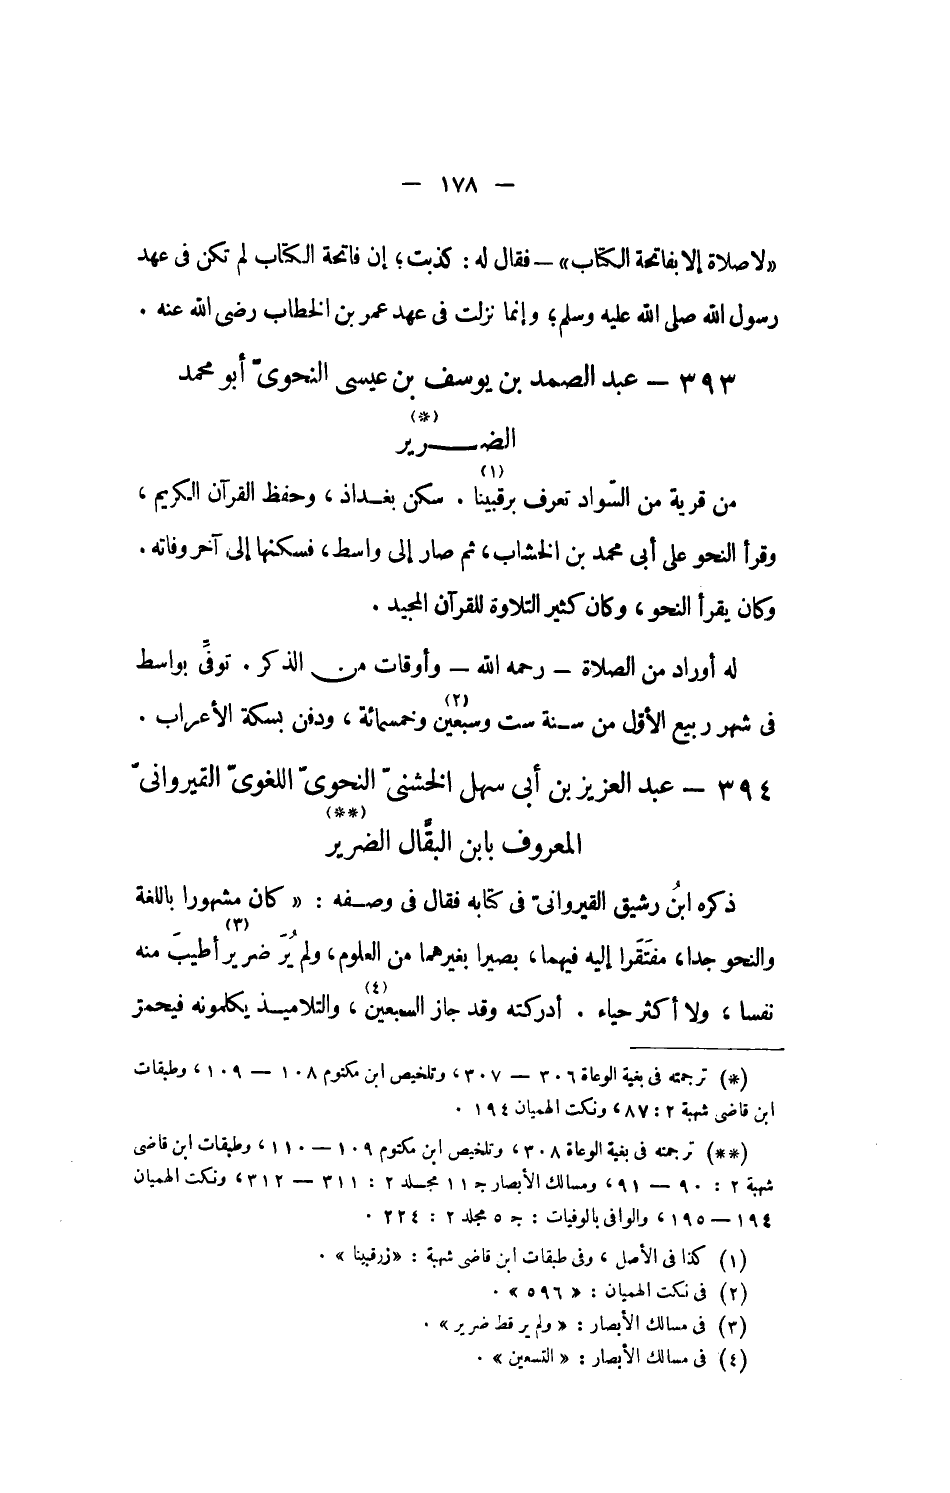 — ١٧٨ —
«لا صلاة إلا بفاتحة الكتاب» – فقال له : كذبت؛ إن فاتحة الكتاب لم تكن فى عهد
رسول الله صلى الله عليه وسلم؛ وإنما نزلت فى عهد عمر بن الخطاب رضى الله عنه .
٣٩٣ – عبد الصمد بن يوسف بن عيسى النحوىّ أبو محمد
الضـــرير (*)
من قرية من السّواد تعرف برقبينا (١) . سكن بغـداذ ، وحفظ القرآن الكريم ،
وقرأ النحو على أبى محمد بن الخشاب، ثم صار إلى واسط، فسكنها إلى آخر وفاته .
وكان يقرأ النحو ، وكان كثير التلاوة للقرآن المجيد .
له أوراد من الصلاة – رحمه الله – وأوقات من الذكر . توفِّى بواسط
فى شهر ربيع الأول من سـنة ست وسبعين (٢) وخمسمائة ، ودفن بسكة الأعراب .
٣٩٤ – عبد العزيز بن أبى سهل الخشنىّ النحوىّ اللغوىّ القيروانىّ
المعروف بابن البقَّال الضرير (**)
ذكره ابنُ رشيق القيروانىّ فى كتابه فقال فى وصـفه : « كان مشهورا باللغة
والنحو جدا، مفتَقَرا إليه فيهما، بصيرا بغيرهما من العلوم، ولم يُرَ ضرير (٣) أطيبَ منه
نفسا ، ولا أكثر حياء . أدركته وقد جاز السبعين (٤) ، والتلاميـذ يكلمونه فيحمرّ
(*) ترجمته فى بغية الوعاة ٣٠٦ – ٣٠٧، وتلخيص ابن مكتوم ١٠٨ – ١٠٩ ، وطبقات
ابن قاضى شهبة ٢ : ٨٧، ونكت الهميان ١٩٤ .
(**) ترجمته فى بغية الوعاة ٣٠٨، وتلخيص ابن مكتوم ١٠٩ – ١١٠ ، وطبقات ابن قاضى
شهبة ٢ : ٩٠ – ٩١، ومسالك الأبصار جـ ١١ مجـلد ٢ : ٣١١ – ٣١٢، ونكت الهميان
١٩٤ – ١٩٥، والوافى بالوفيات : جـ ٥ مجلد ٢ : ٢٢٤ .
(١) كذا فى الأصل ، وفى طبقات ابن قاضى شهبة : «زرقبينا» .
(٢) فى نكت الهميان : « ٥٩٦ » .
(٣) فى مسالك الأبصار : « ولم ير قط ضرير » .
(٤) فى مسالك الأبصار : « التسعين » .